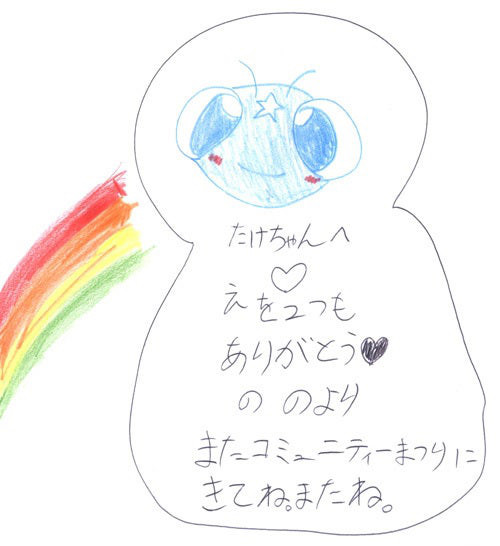 たけちゃんへ
♡
えを2つも
ありがとう♥
の のより
またコミュニティーまつりに
きてね。またね。